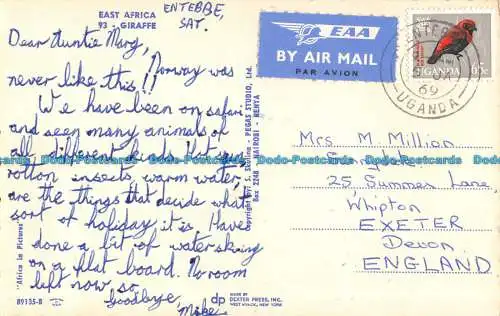 EAST AFRICA
93 - GIRAFFE
ENTEBBE,
SAT.
Dear Auntie Mary,
Norway was
never like this!!
We have been on safari
and seen many animals of
all different kinds. But
rotton insects, warm water,
are the things that decide what
sort of holiday it is. Have
done a bit of water skiing
on a flat board. No room
left now, so
Goodbye,
Mike
"Africa in Pictures"
89135-B
Copyright by S. Skulina - PEGAS STUDIO, Ltd.
Box 2248 NAIROBI - KENYA
dp
MADE BY
DEXTER PRESS, INC.
WEST NYACK, NEW YORK
EAA
BY AIR MAIL
PAR AVION
UGANDA
65c
ENTEBBE
69
UGANDA
Mrs. M. Millian
25 Summer Lane
Whipton
EXETER
Devon
ENGLAND
Dodo-Postcards Dodo-Postcards Dodo-Postcards Dodo-Postcards